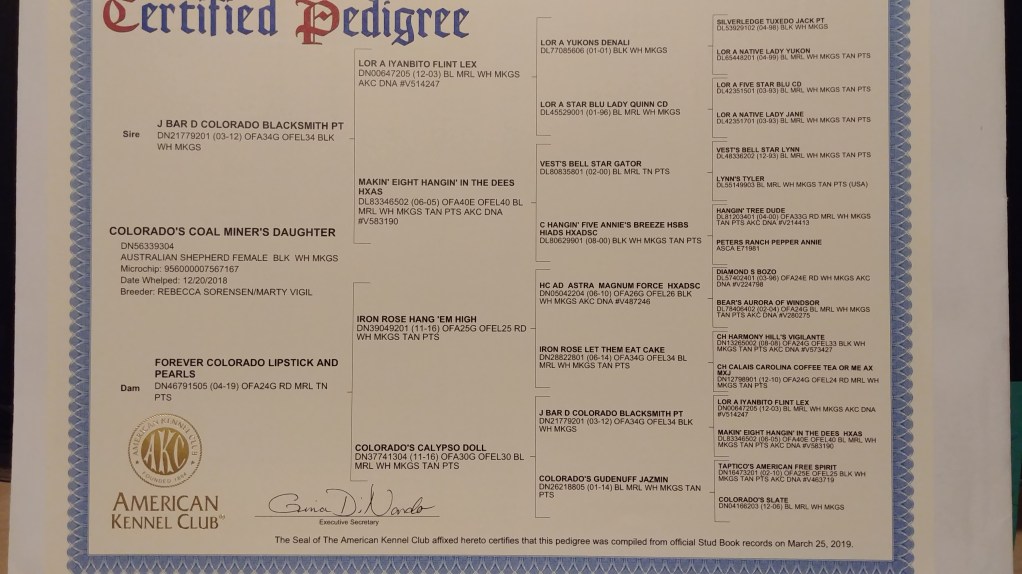 Certified Pedigree
Sire
J BAR D COLORADO BLACKSMITH PT
DN21779201 (03-12) OFA34G OFEL34 BLK
WH MKGS
COLORADO'S COAL MINER'S DAUGHTER
DN56339304
AUSTRALIAN SHEPHERD FEMALE BLK WH MKGS
Microchip: 956000007567167
Date Whelped: 12/20/2018
Breeder: REBECCA SORENSEN/MARTY VIGIL
Dam
FOREVER COLORADO LIPSTICK AND
PEARLS
DN46791505 (04-19) OFA24G RD MRL TN
PTS
LOR A IYANBITO FLINT LEX
DN00647205 (12-03) BL MRL WH MKGS
AKC DNA #V514247
MAKIN' EIGHT HANGIN' IN THE DEES
HXAS
DL83346502 (06-05) OFA40E OFEL40 BL
MRL WH MKGS TAN PTS AKC DNA
#V583190
IRON ROSE HANG 'EM HIGH
DN39049201 (11-16) OFA25G OFEL25 RD
WH MKGS TAN PTS
COLORADO'S CALYPSO DOLL
DN37741304 (11-16) OFA30G OFEL30 BL
MRL WH MKGS TAN PTS
LOR A YUKONS DENALI
DL77085606 (01-01) BLK WH MKGS
LOR A STAR BLU LADY QUINN CD
DL45529001 (01-96) BL MRL WH MKGS
VEST'S BELL STAR GATOR
DL80835801 (02-00) BL MRL TN PTS
C HANGIN' FIVE ANNIE'S BREEZE HSBS
HIADS HXADSC
DL80629901 (08-00) BLK WH MKGS TAN PTS
HC AD ASTRA MAGNUM FORCE HXADSC
DN05042204 (06-10) OFA26G OFEL26 BLK
WH MKGS AKC DNA #V487246
IRON ROSE LET THEM EAT CAKE
DN28822801 (06-14) OFA34G OFEL34 BL
MRL WH MKGS TAN PTS
J BAR D COLORADO BLACKSMITH PT
DN21779201 (03-12) OFA34G OFEL34 BLK
WH MKGS
COLORADO'S GUDENUFF JAZMIN
DN26218805 (01-14) BL MRL WH MKGS TAN
PTS
SILVERLEDGE TUXEDO JACK PT
DL53929102 (04-98) BLK WH MKGS
LOR A NATIVE LADY YUKON
DL65448201 (04-99) BL MRL WH MKGS TAN PTS
LOR A FIVE STAR BLU CD
DL42351501 (03-93) BL MRL WH MKGS TAN PTS
LOR A NATIVE LADY JANE
DL42351701 (03-93) BL MRL WH MKGS TAN PTS
VEST'S BELL STAR LYNN
DL48336202 (12-93) BL MRL WH MKGS TAN PTS
LYNN'S TYLER
DL55149903 BL MRL WH MKGS TAN PTS (USA)
HANGIN' TREE DUDE
DL81203401 (04-00) OFA33G RD MRL WH MKGS
TAN PTS AKC DNA #V214413
PETERS RANCH PEPPER ANNIE
ASCA E71981
DIAMOND S BOZO
DL57402401 (03-96) OFA24E RD WH MKGS AKC
DNA #V224798
BEAR'S AURORA OF WINDSOR
DL78406402 (02-04) OFA24G BL MRL WH MKGS
TAN PTS AKC DNA #V280275
CH HARMONY HILL'S VIGILANTE
DN13265002 (08-08) OFA24G OFEL33 BLK WH
MKGS TAN PTS AKC DNA #V573427
CH CALAIS CAROLINA COFFEE TEA OR ME AX
MXJ
DN12798901 (12-10) OFA24G OFEL24 RD MRL WH
MKGS TAN PTS
LOR A IYANBITO FLINT LEX
DN00647205 (12-03) BL MRL WH MKGS AKC DNA
#V514247
MAKIN' EIGHT HANGIN' IN THE DEES HXAS
DL83346502 (06-05) OFA40E OFEL40 BL MRL WH
MKGS TAN PTS AKC DNA #V583190
TAPTICO'S AMERICAN FREE SPIRIT
DN16473201 (02-10) OFA25E OFEL25 BLK WH
MKGS TAN PTS AKC DNA #V463719
COLORADO'S SLATE
DN04166203 (12-06) BL MRL WH MKGS
AMERICAN KENNEL CLUB
AKC
FOUNDED 1884
AMERICAN
KENNEL CLUB
Gina DiNardo
Executive Secretary
The Seal of The American Kennel Club affixed hereto certifies that this pedigree was compiled from official Stud Book records on March 25, 2019.